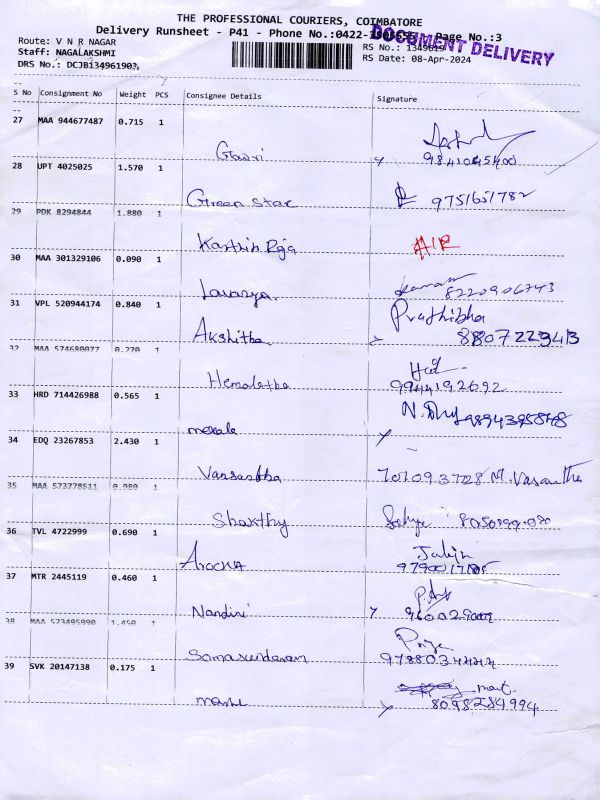 THE PROFESSIONAL COURIERS, COIMBATORE
Delivery Runsheet - P41 - Phone No.:0422- Page No.:3
DOCUMENT DELIVERY
Route: V N R NAGAR
RS No.: 1349619
Staff: NAGALAKSHMI
RS Date: 08-Apr-2024
DRS No.: DCJB134961903
S No Consignment No Weight PCS Consignee Details Signature
27 MAA 944677487 0.715 1
Gowri 9841045400
28 UPT 4025025 1.570 1
Green Star 9751651782
29 PDK 8294844 1.880 1
Karthik Raja
30 MAA 301329106 0.090 1
Lavanya 8220906743
31 VPL 520944174 0.840 1 Prathibha
Akshitha 8807222343
32 MAA 574680077 0.270 1
Hemalatha 9944192692
33 HRD 714426988 0.565 1
34 EDQ 23267853 2.430 1
701093728 M. Vasantha
35 MAA 573778511 0.980 1
Shakthy
36 TVL 4722999 0.690 1
37 MTR 2445119 0.460 1
Nandini
38 MAA 573495990 1.450 1
Priya
Somasundaram
39 SVK 20147138 0.175 1
8098284994